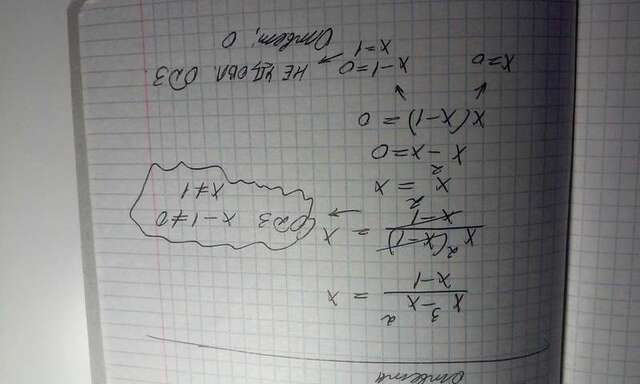 Ответы
x³-x²/x-1 = x
x²(x-1)/x-1 = x
ОДЗ x-1≠0
x≠1
x² = x
x²-x=0
x(x-1)=0
x=0
x-1=0
x=1 → НЕ УДОВЛ. ОДЗ.
Ответ; 0